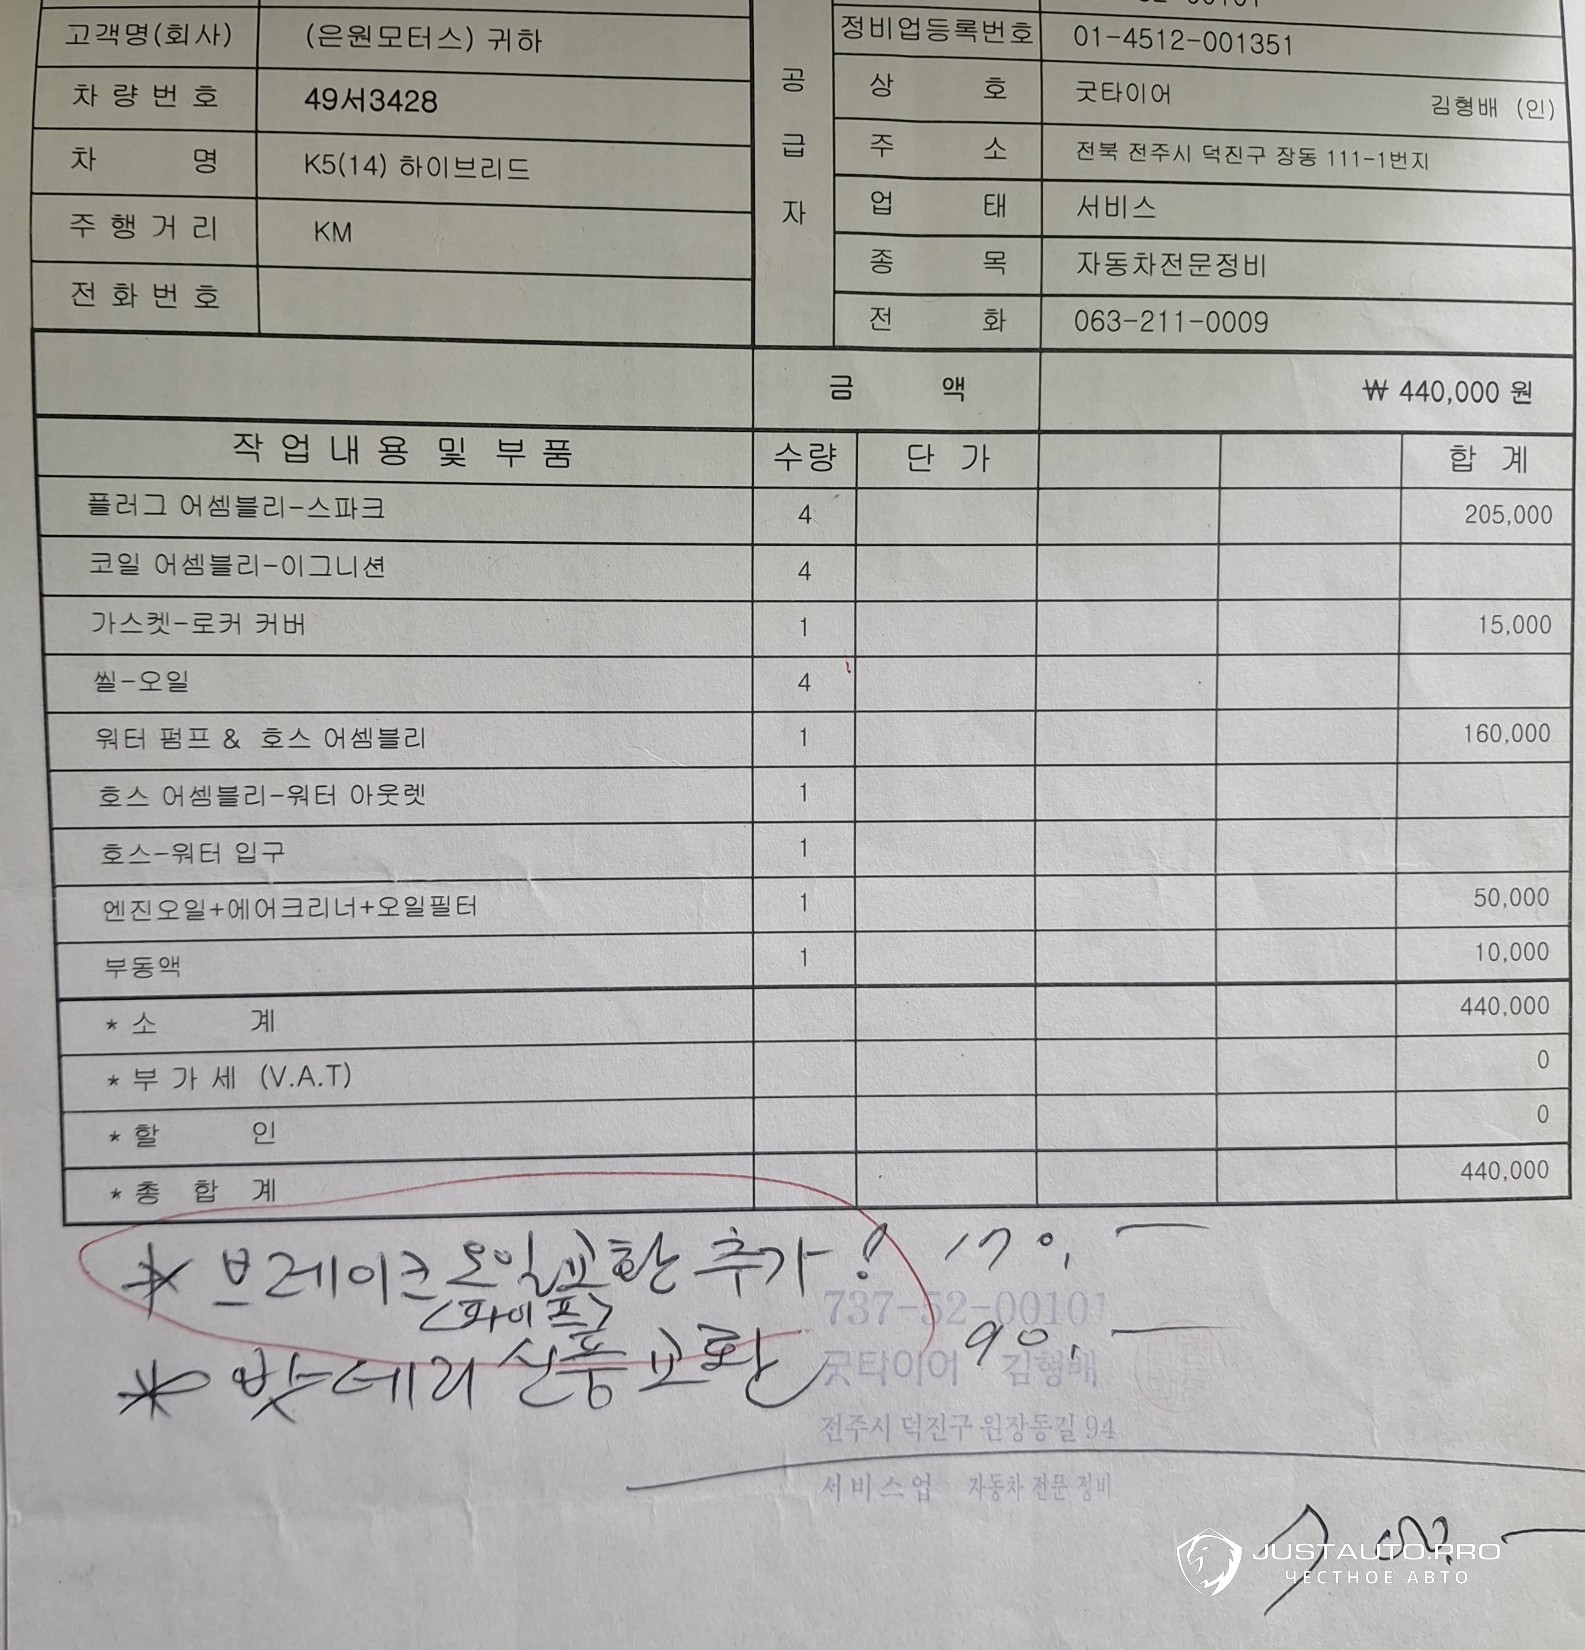 고객명(회사) (은원모터스) 귀하
차량번호 49서3428
차 명 K5(14) 하이브리드
주행거리 KM
전화번호
공급자
정비업등록번호 01-4512-001351
상 호 굿타이어 김형배 (인)
주 소 전북 전주시 덕진구 장동 111-1번지
업 태 서비스
종 목 자동차전문정비
전 화 063-211-0009
금 액 ₩ 440,000 원
작업내용 및 부품 수량 단가 합계
플러그 어셈블리-스파크 4 205,000
코일 어셈블리-이그니션 4
가스켓-로커 커버 1 15,000
씰-오일 4
워터 펌프 & 호스 어셈블리 1 160,000
호스 어셈블리-워터 아웃렛 1
호스-워터 입구 1
엔진오일+에어크리너+오일필터 1 50,000
부동액 1 10,000
* 소 계 440,000
* 부가세 (V.A.T) 0
* 할 인 0
* 총 합 계 440,000
* 브레이크 오일교환 추가! 170,―
<파이프>
* 밧데리 신품교환 90,―
737-52-00101
굿타이어 김형배
전주시 덕진구 원장동길 94
서비스업 자동차 전문 정비
JUSTAUTO.PRO
ЧЕСТНОЕ АВТО